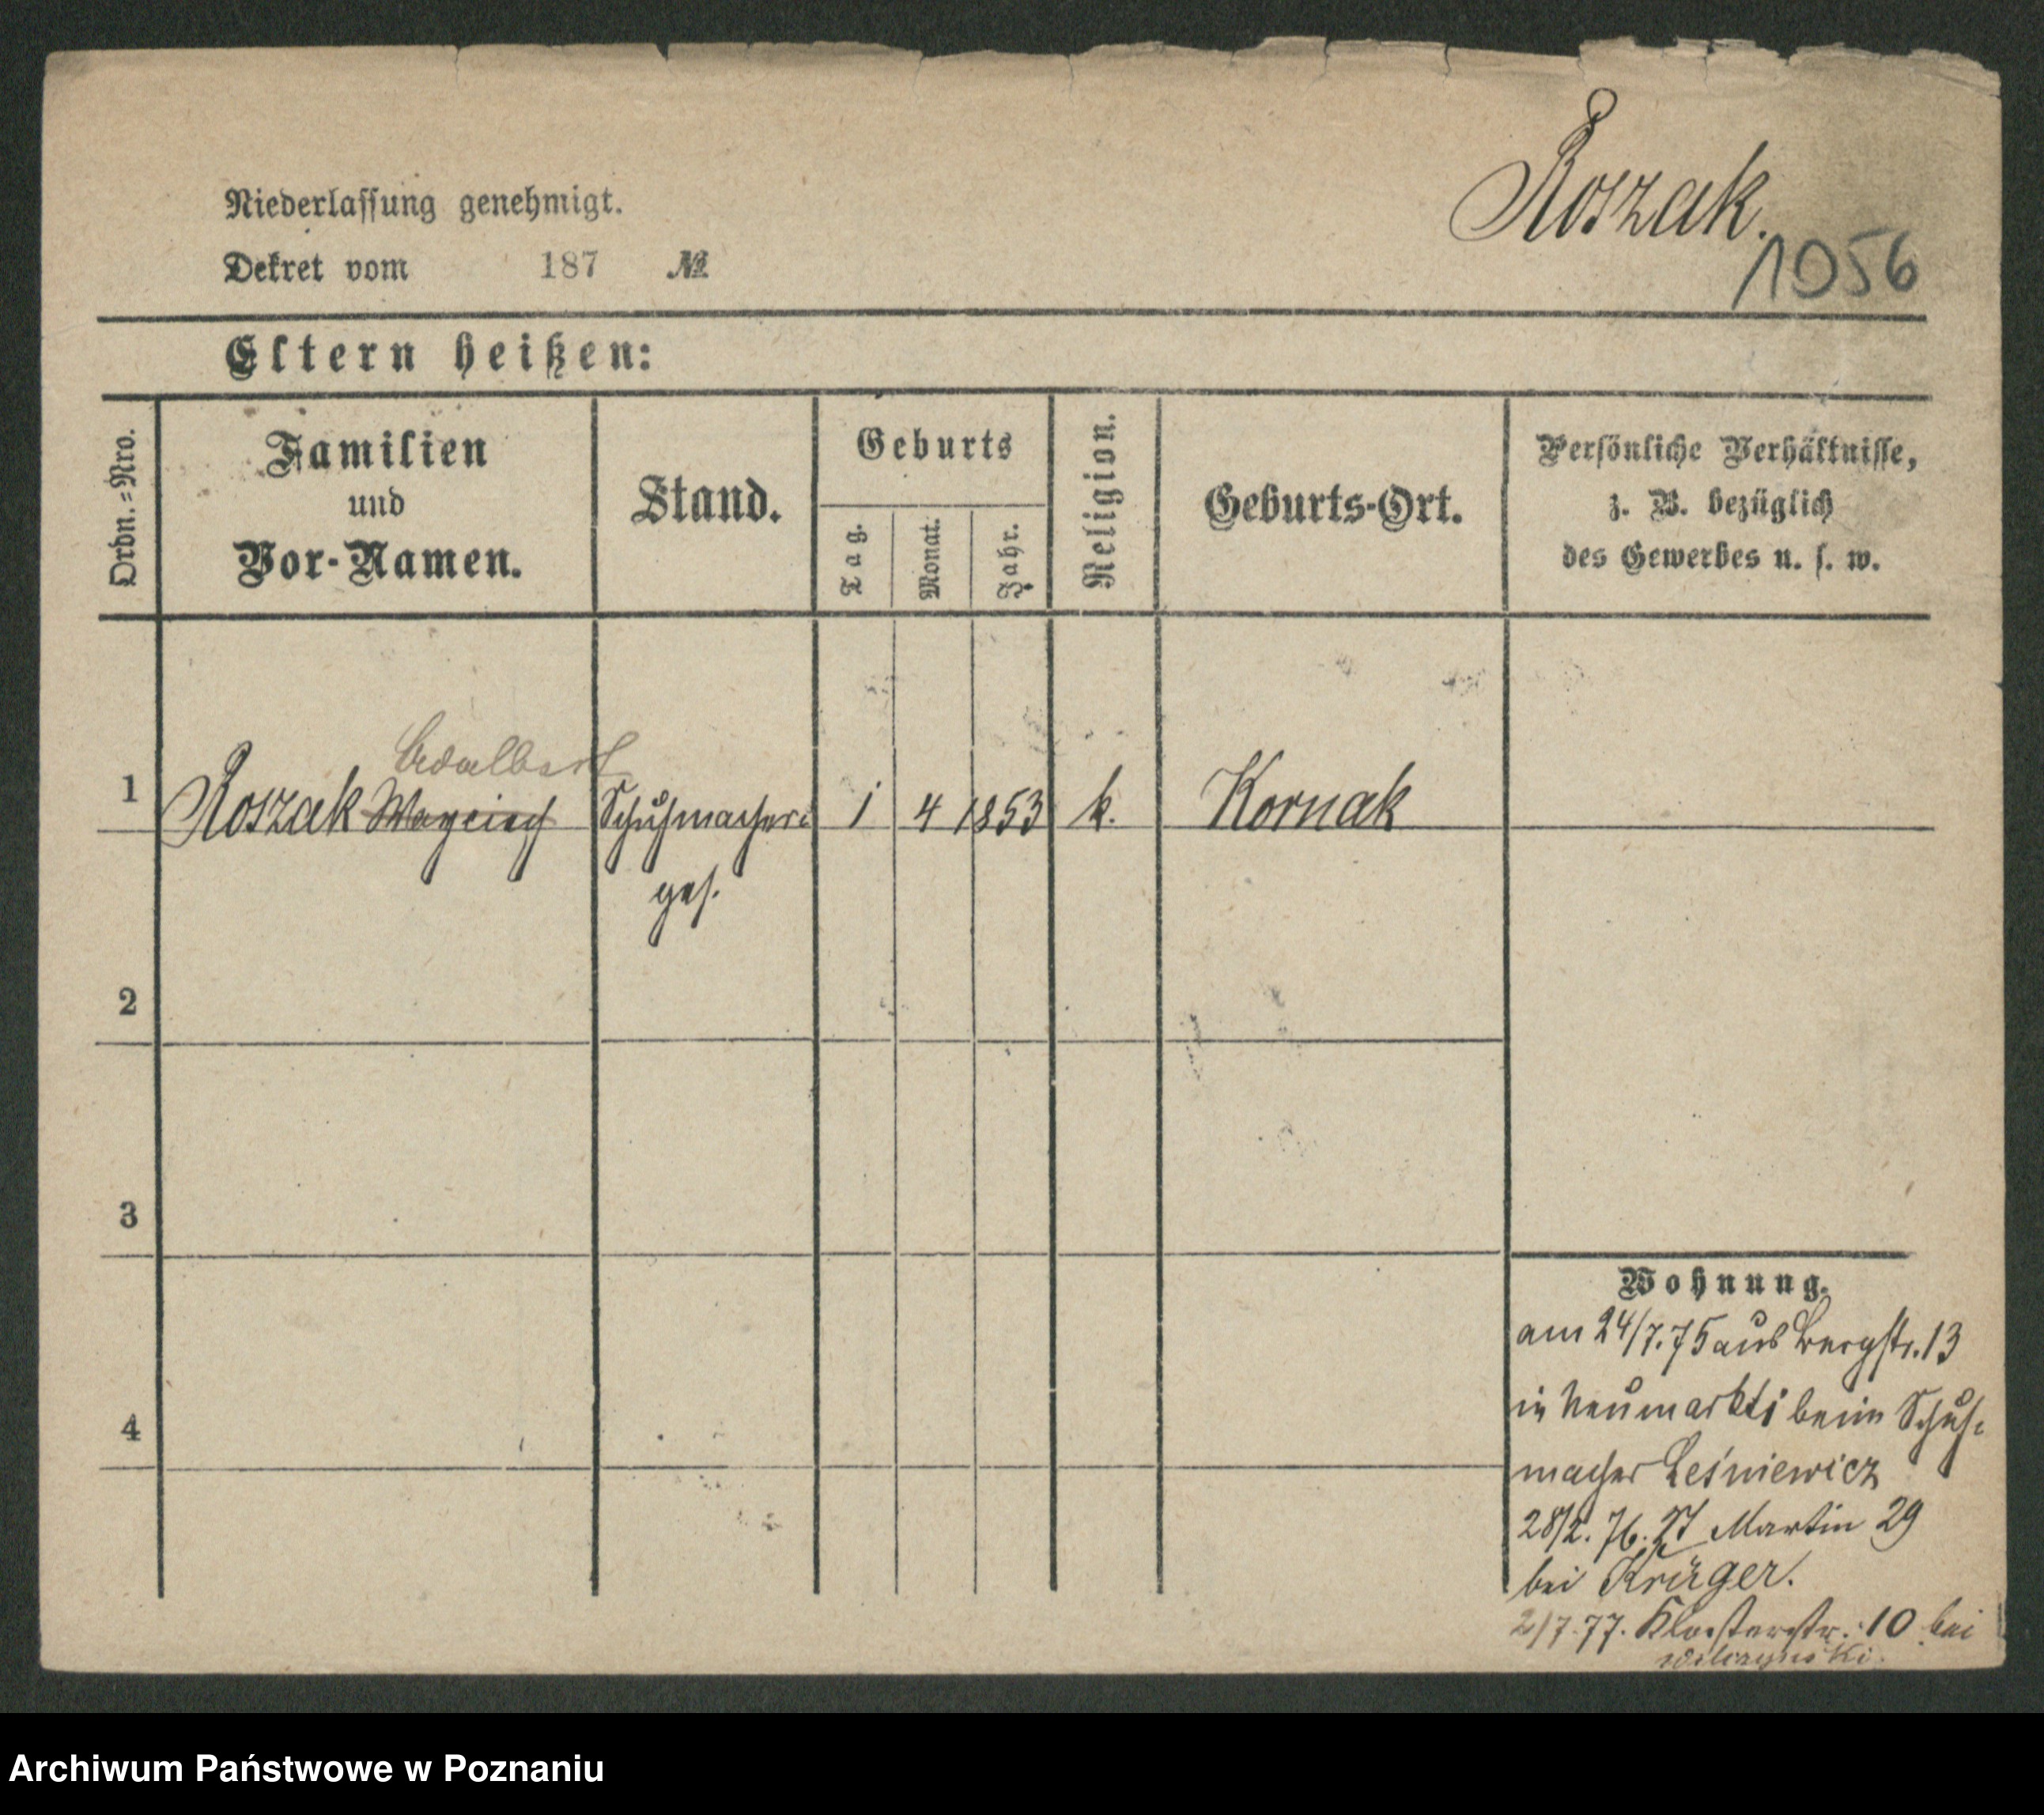 Niederlassung genehmigt.
Dekret vom 187 №
Roszak.
1056
Eltern heißen:
Ordn.=Nro.
Familien
und
Vor-Namen.
Stand.
Geburts
Tag.
Monat.
Jahr.
Religion.
Geburts-Ort.
Persönliche Verhältnisse,
z. B. bezüglich
des Gewerbes u. s. w.
Adalbert
1 Roszak Schuhmacher= 1 4 1853 k. Kornak
ges.
2
3
4
Wohnung.
am 24/7.75 aus Bergstr. 13
in Neumarkt beim Schuh=
macher Leśniewicz
28/2. 76. St Martin 29
bei Krüger.
2/7.77. Klosterstr. 10 bei
Wilczynski.
Archiwum Państwowe w Poznaniu